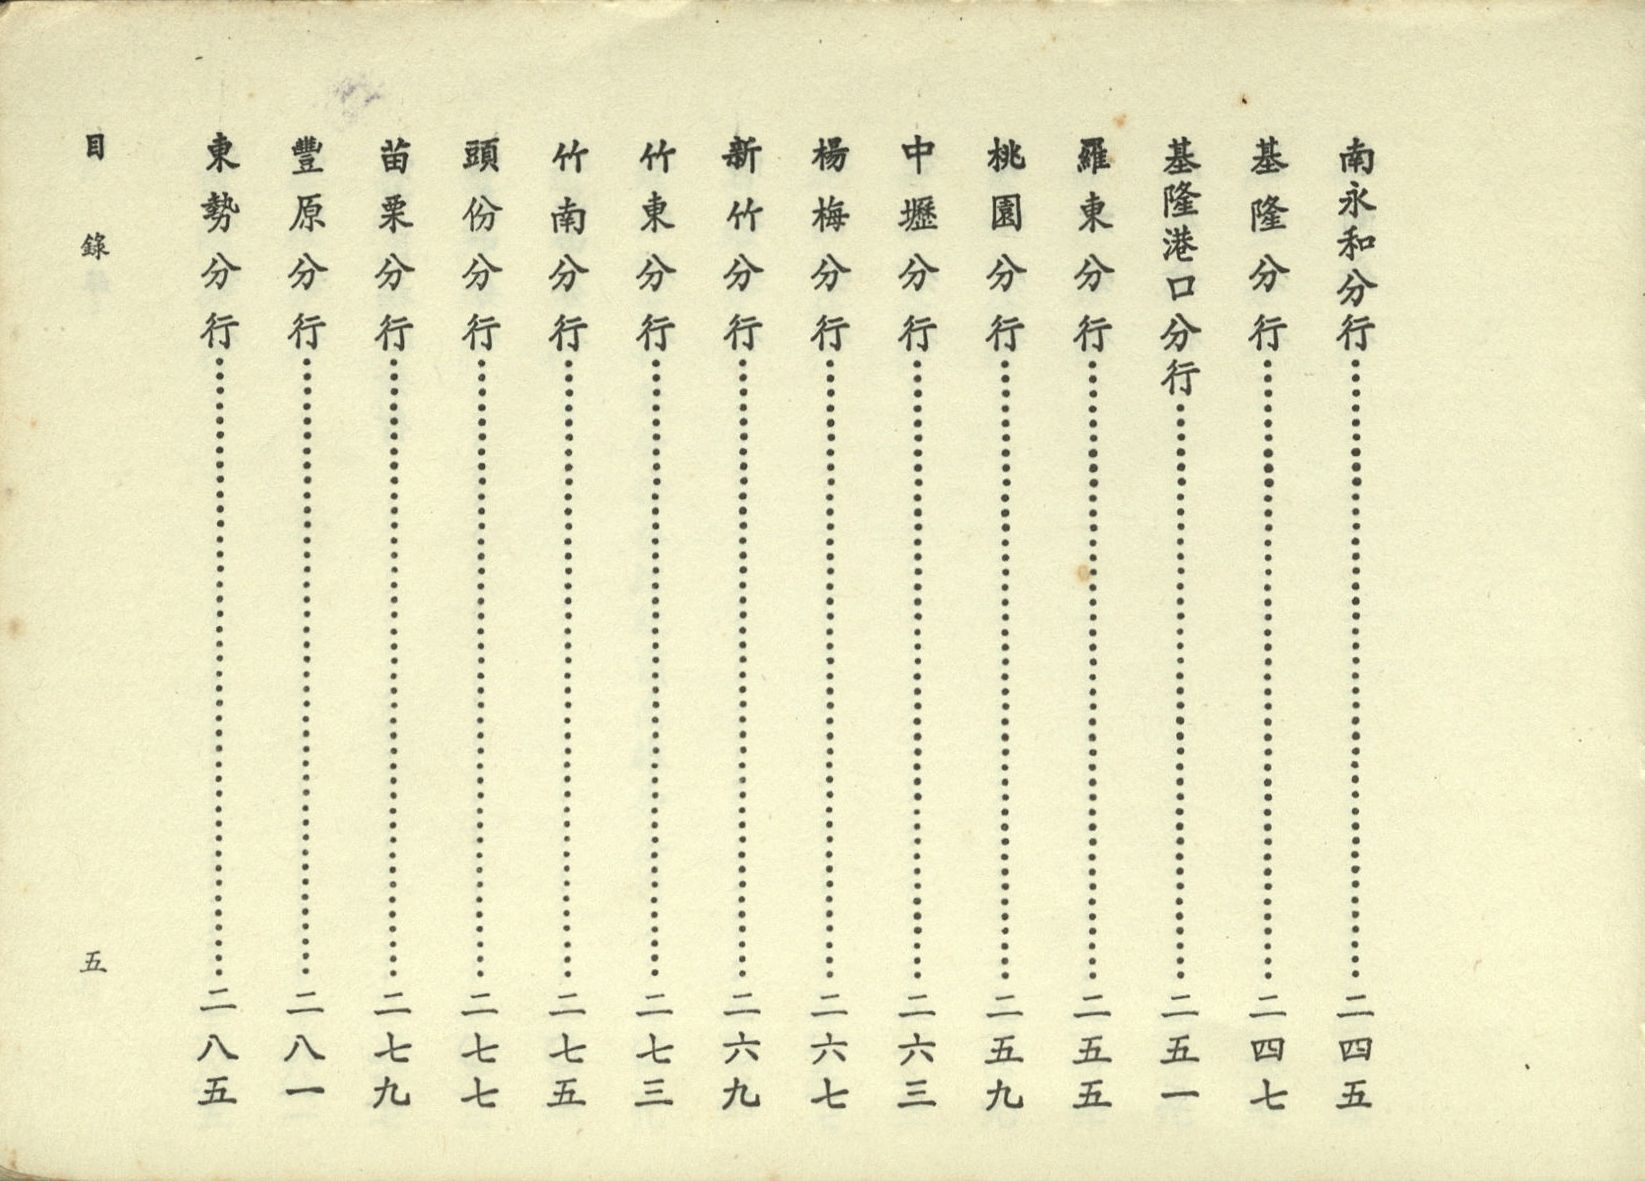 南永和分行……二四五
基隆分行……二四七
基隆港口分行……二五一
羅東分行……二五五
桃園分行……二五九
中壢分行……二六三
楊梅分行……二六七
新竹分行……二六九
竹東分行……二七三
竹南分行……二七五
頭份分行……二七七
苗栗分行……二七九
豐原分行……二八一
東勢分行……二八五
目錄
五